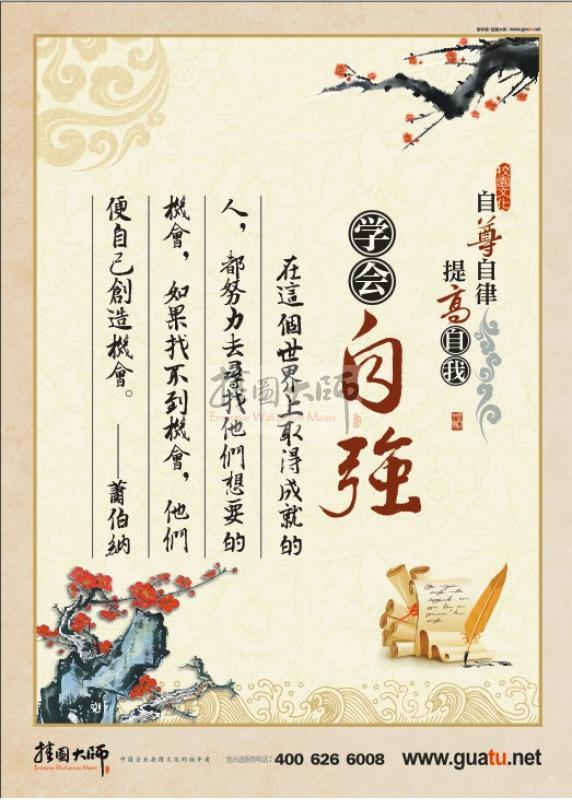 www.guatu.net
校园文化
自尊自律
提高自我
学会自強
在這個世界上取得成就的
人，都努力去尋找他們想要的
機會，如果找不到機會，他們
便自己創造機會。——蕭伯納
挂图大师
Enterprise Wall picture Master
挂图大师
Enterprise Wall picture Master
中国企业挂图文化的领导者
400 626 6008
www.guatu.net